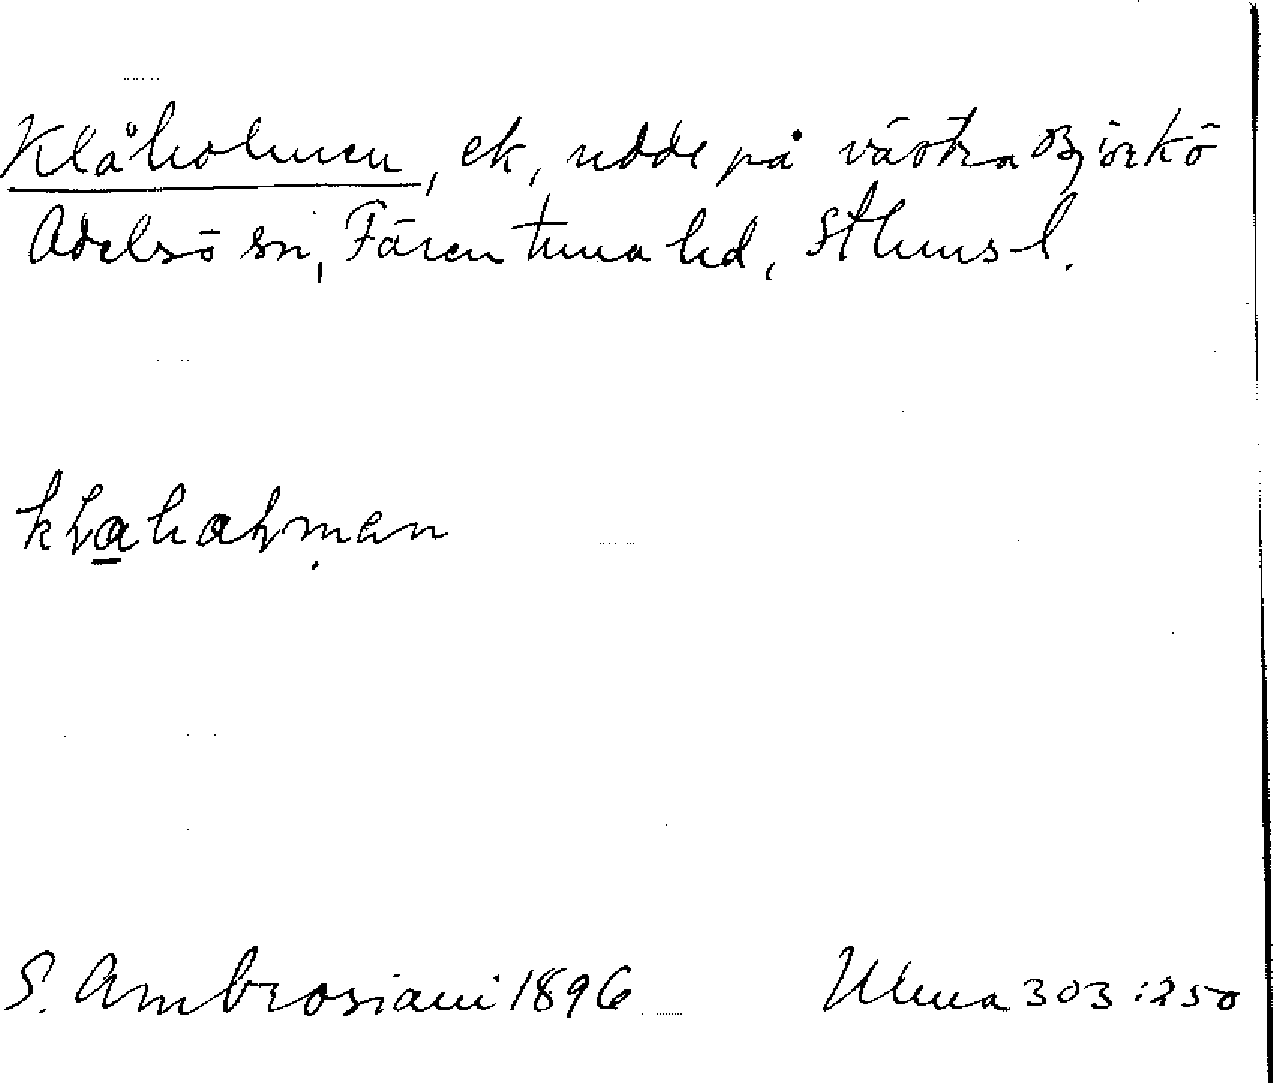 Klåholmen, ek, udde på västra Björkö
Adelsö sn, Färentuna hd, Sthms l.
klahalmen
S. Ambrosiani 1896 Ulma 303:250